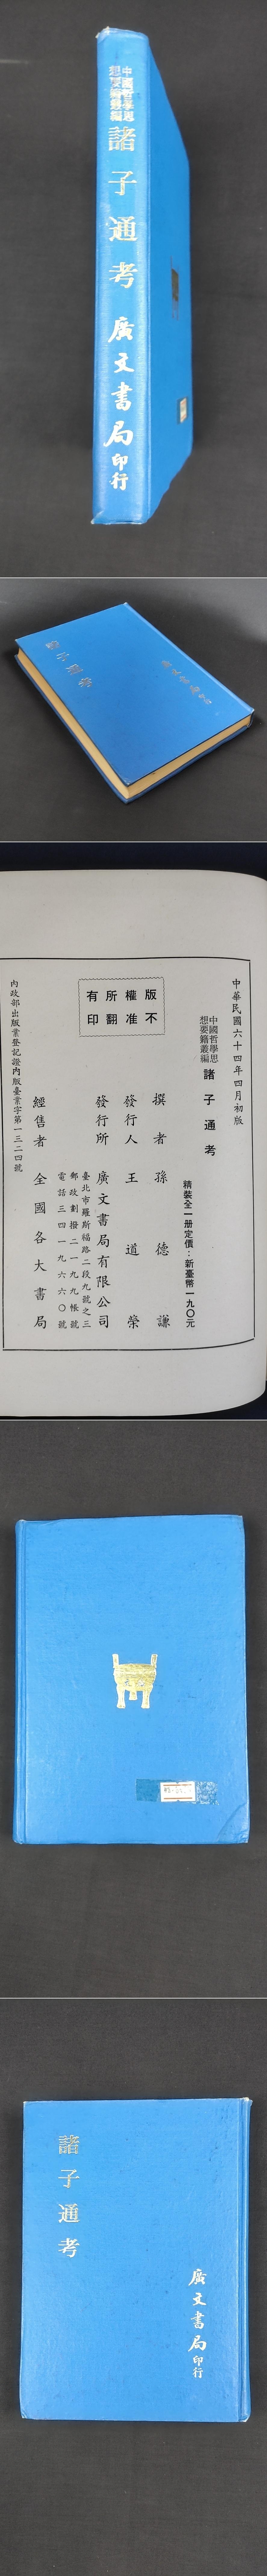 中國哲學思
想要籍叢編
諸子通考
廣文書局印行
諸子通考
廣文書局印行
中華民國六十四年四月初版
中國哲學思
想要籍叢編
諸子通考
精裝全一册定價：新臺幣一九〇元
版權所有
不准翻印
撰者 孫德謙
發行人 王道榮
發行所 廣文書局有限公司
臺北市羅斯福路二段九號之三
郵政劃撥二一九九帳號
電話三四一九六六〇號
經售者 全國各大書局
內政部出版業登記證內版臺業字第一三二四號
諸子通考
廣文書局印行